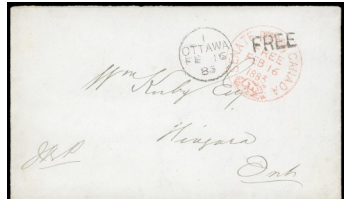 1
OTTAWA
FE 16
83
FREE
CANADA
FREE
FB 16
1883
Wm Kirby Esq
Niagara
Ont